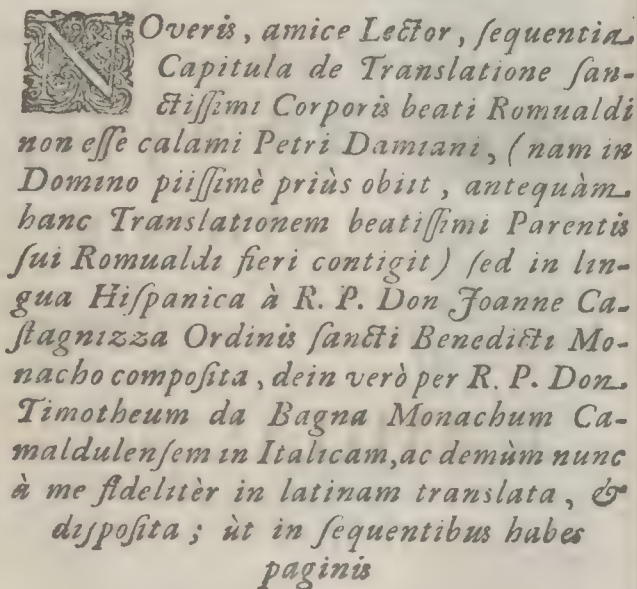 NOveris, amice Lector, sequentia
Capitula de Translatione san-
ctissimi Corporis beati Romualdi
non esse calami Petri Damiani, (nam in
Domino piissimè priùs obiit, antequàm
hanc Translationem beatissimi Parentis
sui Romualdi fieri contigit) sed in lin-
gua Hispanica à R. P. Don Joanne Ca-
stagnizza Ordinis sancti Benedicti Mo-
nacho composita, dein verò per R. P. Don
Timotheum da Bagna Monachum Ca-
maldulensem in Italicam, ac demùm nunc
à me fideliter in latinam translata, &
disposita; ùt in sequentibus habes
paginis